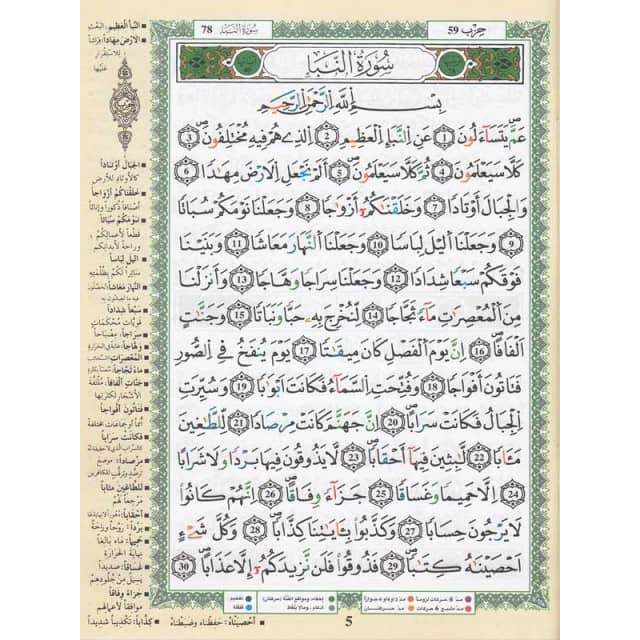 78 سُورَةُ النَّبَإِ
حِزْب 59
سُورَةُ النَّبَإِ
بِسْمِ اللَّهِ الرَّحْمَٰنِ الرَّحِيمِ
عَمَّ يَتَسَآءَلُونَ 1 عَنِ النَّبَإِ الْعَظِيمِ 2 الَّذِے هُمْ فِيهِ مُخْتَلِفُونَ 3
كَلَّا سَيَعْلَمُونَ 4 ثُمَّ كَلَّا سَيَعْلَمُونَ 5 أَلَمْ نَجْعَلِ الْأَرْضَ مِهَٰدًا 6
وَالْجِبَالَ أَوْتَادًا 7 وَخَلَقْنَٰكُمُۥٓ أَزْوَٰجًا 8 وَجَعَلْنَا نَوْمَكُمْ سُبَاتًا
9 وَجَعَلْنَا الَّيْلَ لِبَاسًا 10 وَجَعَلْنَا النَّهَارَ مَعَاشًا 11 وَبَنَيْنَا
فَوْقَكُمْ سَبْعًا شِدَادًا 12 وَجَعَلْنَا سِرَاجًا وَهَّاجًا 13 وَأَنزَلْنَا
مِنَ الْمُعْصِرَٰتِ مَآءً ثَجَّاجًا 14 لِّنُخْرِجَ بِهِۦ حَبًّا وَنَبَاتًا 15 وَجَنَّٰتٍ
أَلْفَافًا 16 إِنَّ يَوْمَ الْفَصْلِ كَانَ مِيقَٰتًا 17 يَوْمَ يُنفَخُ فِے الصُّورِ
فَتَأْتُونَ أَفْوَاجًا 18 وَفُتِّحَتِ السَّمَآءُ فَكَانَتْ أَبْوَٰبًا 19 وَسُيِّرَتِ
الْجِبَالُ فَكَانَتْ سَرَابًا 20 إِنَّ جَهَنَّمَ كَانَتْ مِرْصَادًا 21 لِّلطَّٰغِينَ
مَـَٔابًا 22 لَّٰبِثِينَ فِيهَآ أَحْقَابًا 23 لَّا يَذُوقُونَ فِيهَا بَرْدًا وَلَا شَرَابًا
24 إِلَّا حَمِيمًا وَغَسَاقًا 25 جَزَآءً وِفَاقًا 26 إِنَّهُمْ كَانُوا
لَا يَرْجُونَ حِسَابًا 27 وَكَذَّبُوا بِـَٔايَٰتِنَا كِذَّابًا 28 وَكُلَّ شَےْءٍ
أَحْصَيْنَٰهُ كِتَٰبًا 29 فَذُوقُوا فَلَن نَّزِيدَكُمُۥٓ إِلَّا عَذَابًا 30
النَّبَإِ الْعَظِيمِ: البَعْثِ
الْأَرْضَ مِهَاداً: فراشاً
للاستقرار
عليها
الْجِبَالَ أَوْتَاداً
كالأوتاد للأرض
خَلَقْنَاكُمْ أَزْوَاجاً
أصنافاً ذكوراً وإناثاً
نَوْمَكُمْ سُبَاتاً
قطعاً لأعمالكم
وراحة لأبدانكم
اللَّيْلَ لِبَاساً
ساتراً لكم بظلمته
النَّهَارَ مَعَاشاً
سَبْعاً شِدَاداً
قويات محكمات
سِرَاجاً: مصباحاً
وَهَّاجاً
الْمُعْصِرَاتِ
مَاءً ثَجَّاجاً
جَنَّاتٍ أَلْفَافاً: ملتفة
الأشجار لكثرتها
فَتَأْتُونَ أَفْوَاجاً
فَكَانَتْ سَرَاباً
مِرْصَاداً
لِلطَّاغِينَ مَآباً
مرجعاً لهم
أَحْقَاباً
بَرْداً
حَمِيماً: ماء بالغاً
نهاية الحرارة
غَسَاقاً: صديداً
يسيل من جلودهم
جَزَاءً وِفَاقاً
موافقاً لأعمالهم
كِذَّاباً: تكذيباً شديداً
أَحْصَيْنَاهُ: حفظناه وضبطناه
5